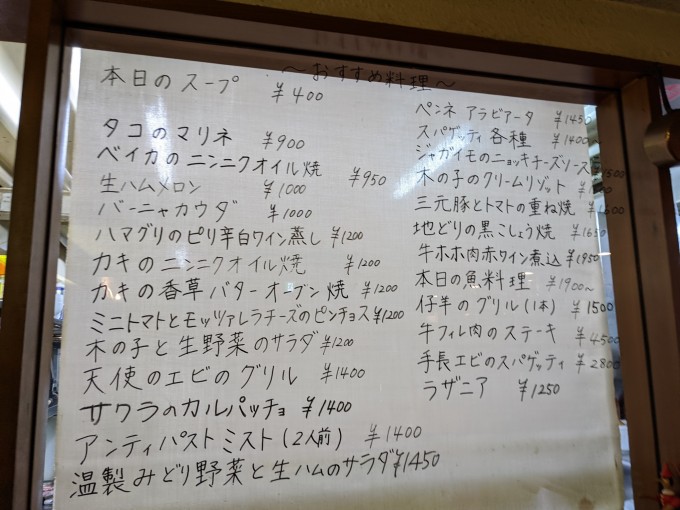 ～おすすめ料理～
本日のスープ ¥400
タコのマリネ ¥900
ベイカのニンニクオイル焼 ¥950
生ハムメロン ¥1000
バーニャカウダ ¥1000
ハマグリのピリ辛白ワイン蒸し ¥1200
カキのニンニクオイル焼 ¥1200
カキの香草バターオーブン焼 ¥1200
ミニトマトとモッツァレラチーズのピンチョス ¥1200
木の子と生野菜のサラダ ¥1200
天使のエビのグリル ¥1400
サワラのカルパッチョ ¥1400
アンティパストミスト(2人前) ¥1400
温製みどり野菜と生ハムのサラダ ¥1450
ペンネ アラビアータ ¥1450
スパゲッティ各種 ¥1400
ジャガイモのニョッキチーズソース
木の子のクリームリゾット
三元豚とトマトの重ね焼
地どりの黒こしょう焼 ¥1650
牛ホホ肉赤ワイン煮込 ¥1950
本日の魚料理 ¥1900～
仔羊のグリル(1本) ¥1500
牛フィレ肉のステーキ ¥4500
手長エビのスパゲッティ ¥2800
ラザニア ¥1250